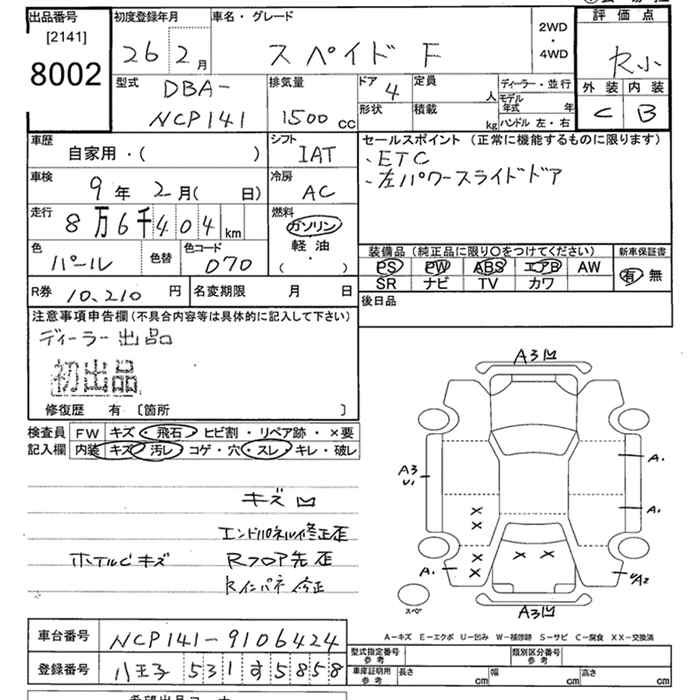 出品番号 初度登録年月 車名・グレード 2WD・4WD 評価点
[2141]
8002 26 2月 スペイド F R小
外装 内装
C B
型式 DBA-NCP141 排気量 1500cc ドア 4 定員 人 ディーラー・並行
形状 積載 kg モデル年式 年
ハンドル 左・右
車歴 自家用・( ) シフト IAT セールスポイント (正常に機能するものに限ります)
車検 9年 2月( 日) 冷房 AC
、ETC
、左パワースライドドア
走行 8万6千404km 燃料 ガソリン
軽油
( ・ )
色 パール 色替 色コード 070
装備品 (純正品に限り〇をつけてください) 新車保証書
PS PW ABS エアB AW 有 無
SR ナビ TV カワ
R券 10,210円 名変期限 月 日 後日品
注意事項申告欄(不具合内容等は具体的に記入して下さい)
ディーラー出品
初出品
修復歴 有 〔箇所 〕
検査員 FW キズ・飛石・ヒビ割・リペア跡・×要
記入欄 内装 キズ・汚レ・コゲ・穴・スレ・キレ・破レ
キズ凹
エンドパネル修正歪
ホイルCキズ Rフロア先歪
Rインパネ修正
A3凹
A3
U1
A1
A1
A1
U/A2
スペ
A3凹
A-キズ E-エクボ U-凹み W-補修跡 S-サビ C-腐食 XX-交換済
車台番号 NCP141-9106424
登録番号 八王子 531 す 5858
型式指定番号 参考 類別区分番号 参考
車庫証明用 参考 長さ cm 幅 cm 高さ cm